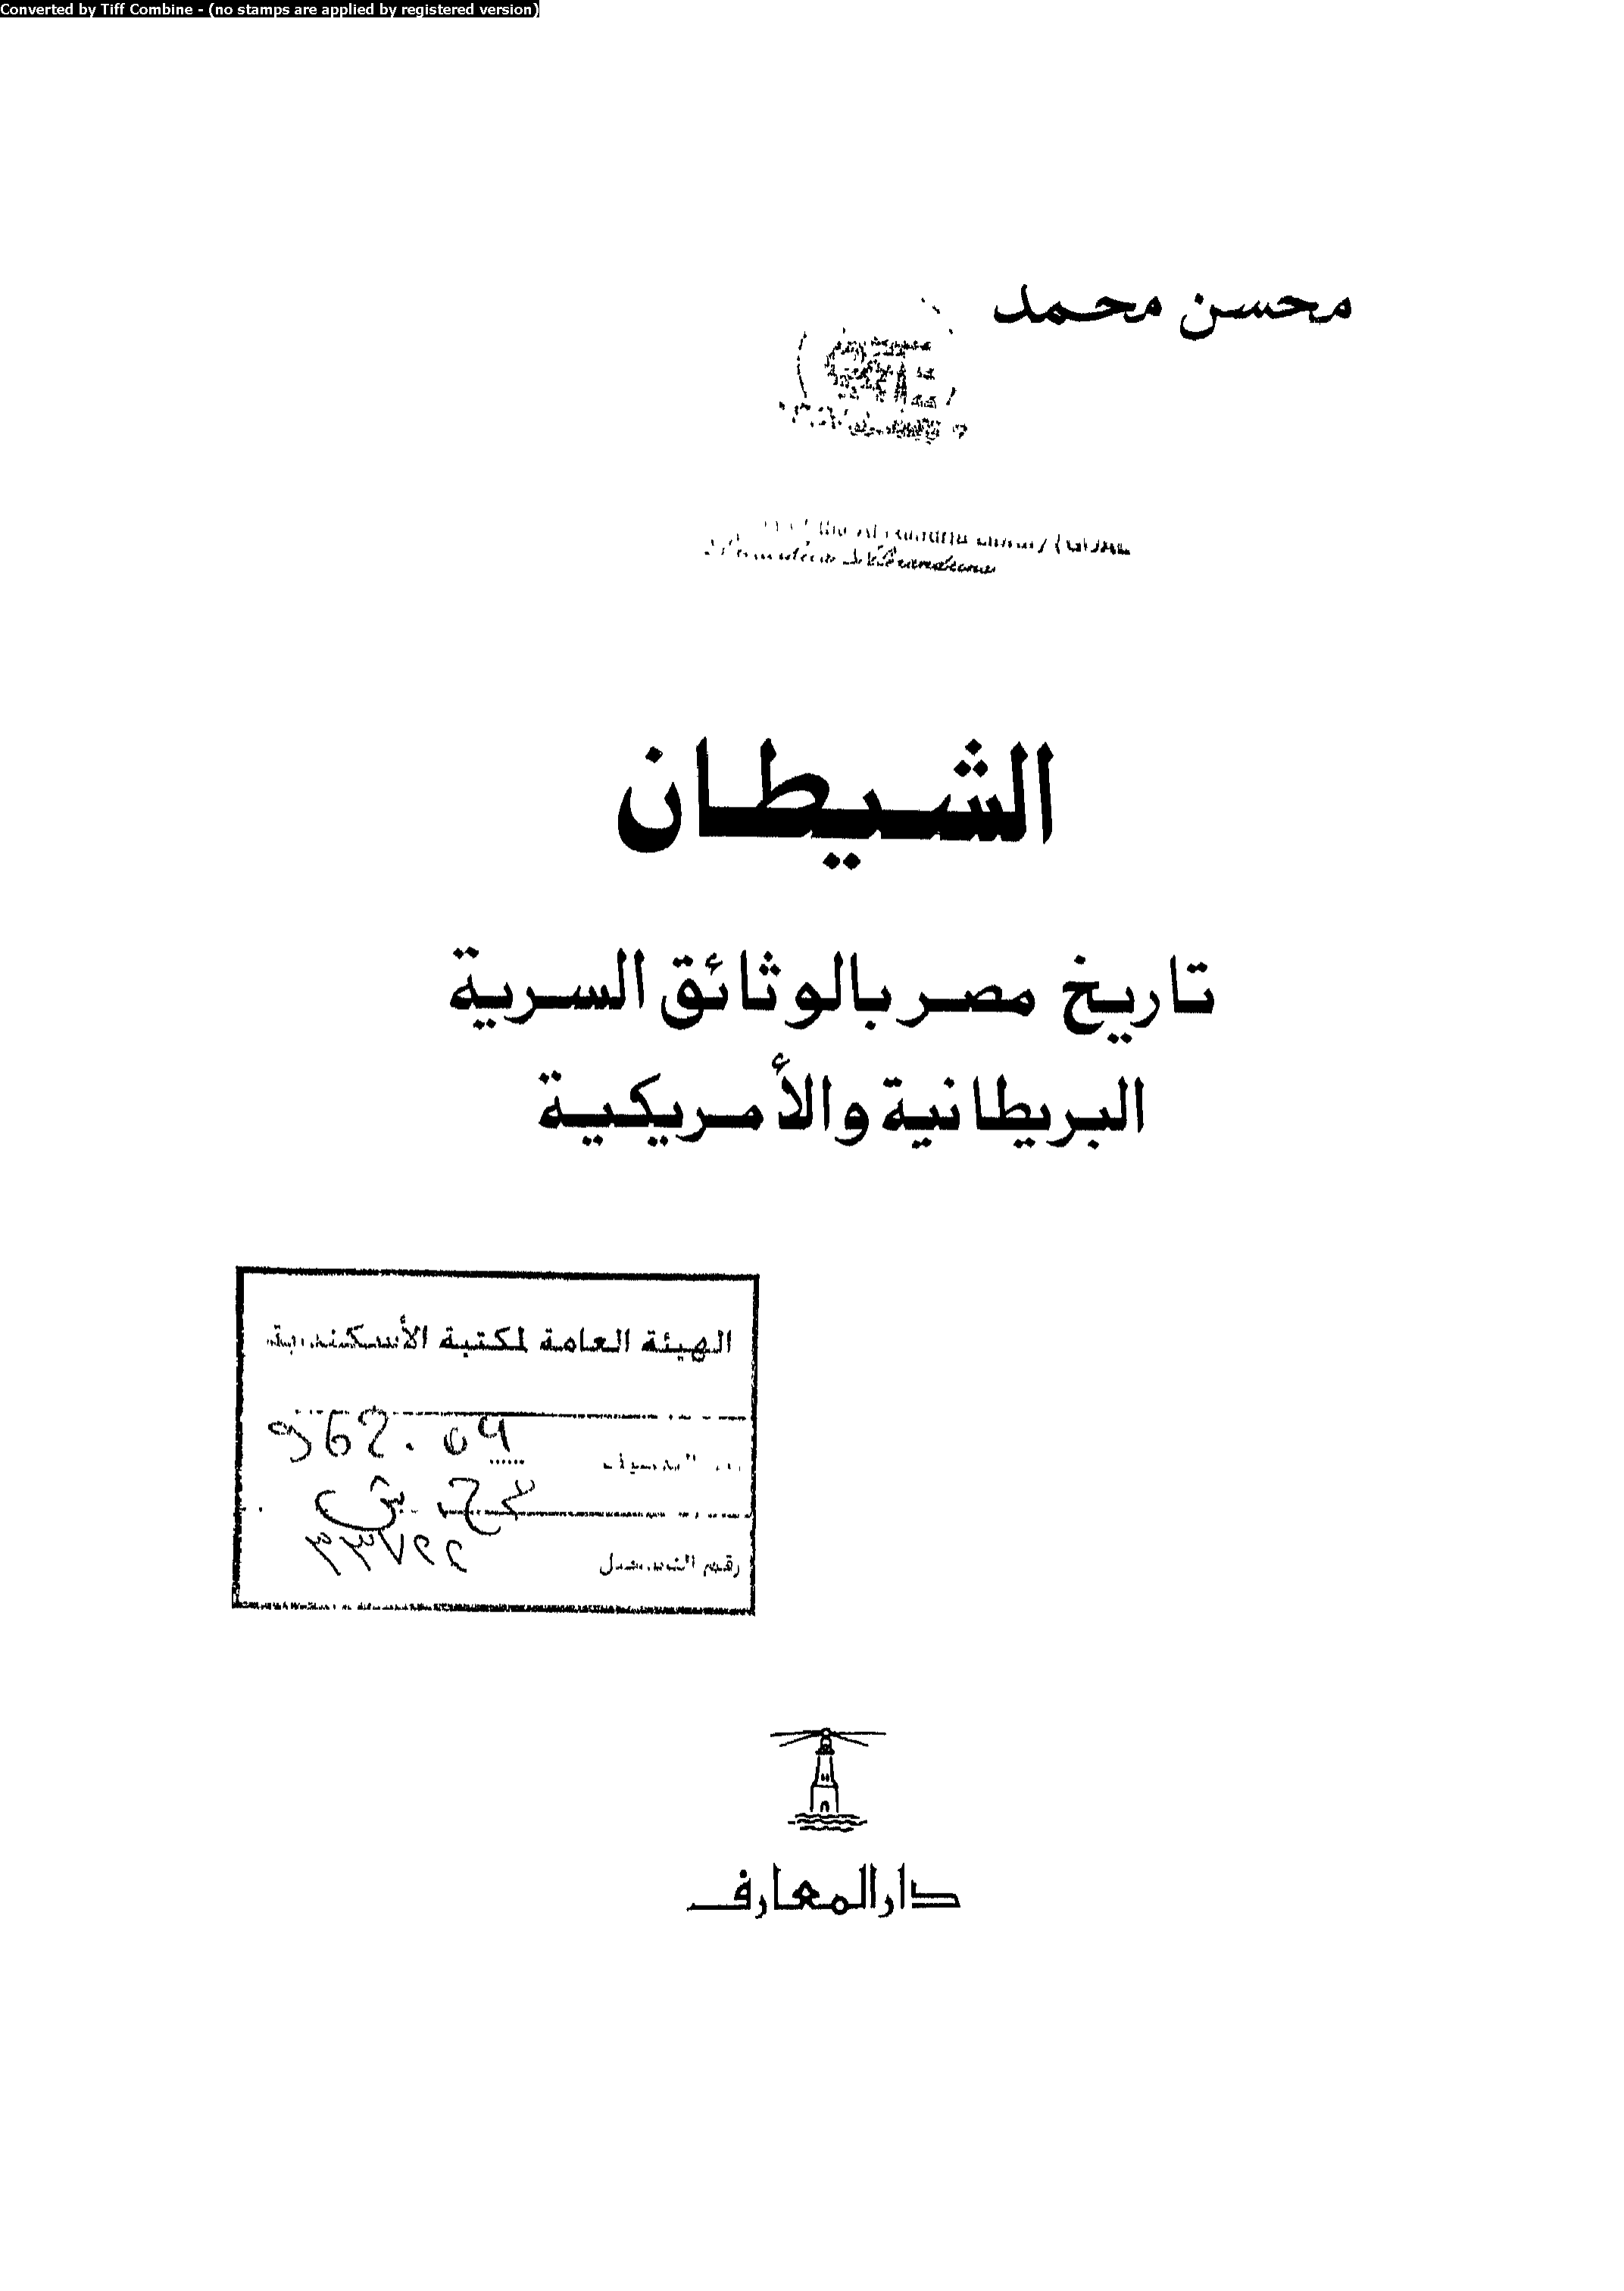 Converted by Tiff Combine - (no stamps are applied by registered version)
محسن محمد
الشيطان
تاريخ مصر بالوثائق السرية
البريطانية والأمريكية
الهيئة العامة لمكتبة الأسكندرية
962.09
رقم التسجيل
٣٣٧٢٢
دار المعارف